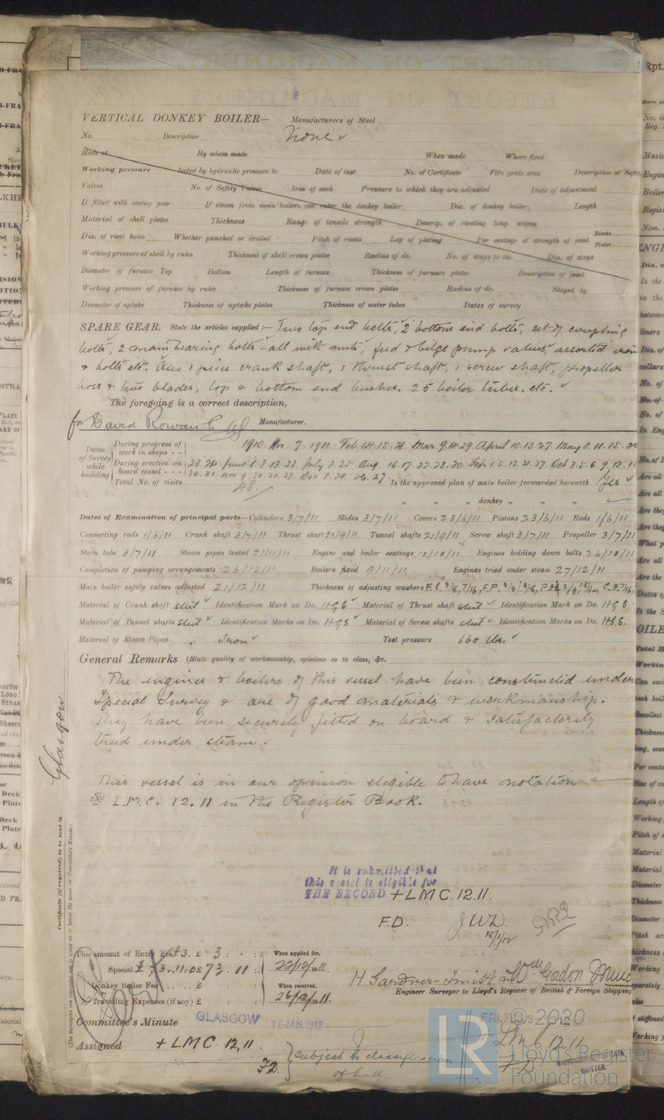 VERTICAL DONKEY BOILER— Manufacturers of Steel
No. Description None
Made at By whom made When made Where fixed
Working pressure tested by hydraulic pressure to Date of test No. of Certificate Fire grate area Description of Safety
Valves No. of Safety Valves Area of each Pressure to which they are adjusted Date of adjustment
If fitted with easing gear If steam from main boilers can enter the donkey boiler Dia. of donkey boiler Length
Material of shell plates Thickness Range of tensile strength Descrip. of riveting long. seams
Dia. of rivet holes Whether punched or drilled Pitch of rivets Lap of plating Per centage of strength of joint Rivets Plates
Working pressure of shell by rules Thickness of shell crown plates Radius of do. No. of stays to do. Dia. of stays
Diameter of furnace Top Bottom Length of furnace Thickness of furnace plates Description of joint
Working pressure of furnace by rules Thickness of furnace crown plates Radius of do. Stayed by
Diameter of uptake Thickness of uptake plates Thickness of water tubes Dates of survey
SPARE GEAR. State the articles supplied:— Two top end bolts, 2 bottom end bolts, set of coupling
bolts, 2 main bearing bolts - all with nuts, feed & bilge pump valves, assorted iron
& bolts etc. Also 1 piece crank shaft, 1 thrust shaft, 1 screw shaft, propeller
boss & blades, top & bottom end bushes. 25 boiler tubes. etc.
The foregoing is a correct description,
for David Rowan & Co Manufacturer.
Dates of Survey while building
During progress of work in shops - - 1910. Nov. 7. 1911. Feb 14. 15. 28 Mar 9. 14. 29. April 10. 13. 27 May 1. 11. 15.
During erection on board vessel - - -
Total No. of visits 48 Is the approved plan of main boiler forwarded herewith Yes
" " donkey " " "
Dates of Examination of principal parts—Cylinders 3/7/11 Slides 3/7/11 Covers 23/6/11 Pistons 23/6/11 Rods 1/6/11
Connecting rods 1/6/11 Crank shaft 3/7/11 Thrust shaft 21/9/11 Tunnel shafts 21/9/11 Screw shaft 3/7/11 Propeller 3/7/11
Stern tube 3/7/11 Steam pipes tested 21/11/11 Engine and boiler seatings 12/10/11 Engines holding down bolts 26/10/11
Completion of pumping arrangements 26/12/11 Boilers fixed 9/11/11 Engines tried under steam 27/12/11
Main boiler safety valves adjusted 21/12/11 Thickness of adjusting washers
Material of Crank shaft steel Identification Mark on Do. HGS Material of Thrust shaft steel Identification Mark on Do. HGS
Material of Tunnel shafts steel Identification Marks on Do. HGS Material of Screw shafts steel Identification Marks on Do. HGS.
Material of Steam Pipes Iron Test pressure 660 lbs.
General Remarks (State quality of workmanship, opinions as to class, &c.
The engines & boilers of this vessel have been constructed under
Special Survey & are of good materials & workmanship.
They have been securely fitted on board & satisfactorily
tried under steam.
This vessel is in our opinion eligible to have notation
L.M.C. 12.11 in the Register Book.
Glasgow
It is submitted that
this vessel is eligible for
THE RECORD + LMC. 12.11.
F.D. JWD
The amount of Entry Fee £ 3
Special £ 73. 11.
Donkey Boiler Fee £
Travelling Expenses (if any) £
When applied for,
22/12/11
When received,
26/12/11
H Gardner-Smith
Engineer Surveyor to Lloyd's Register of British & Foreign Shipping
Committee's Minute GLASGOW 16 JAN. 1912
Assigned + LMC. 12.11.
F.D.
Subject to classification
of hull
© 2020
LR Lloyd's Register
Foundation